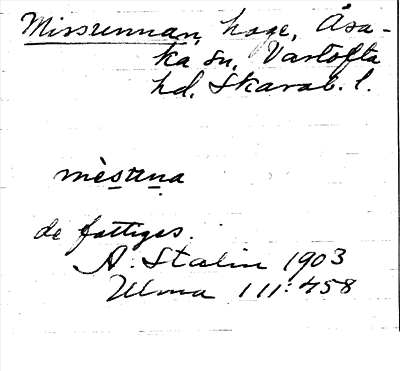 Missunnan, hage, Åsa-
ka sn, Vartofta
hd, Skarab. l.
mèsuna
de fattigas.
A. Stalin 1903
Ulma 111:458